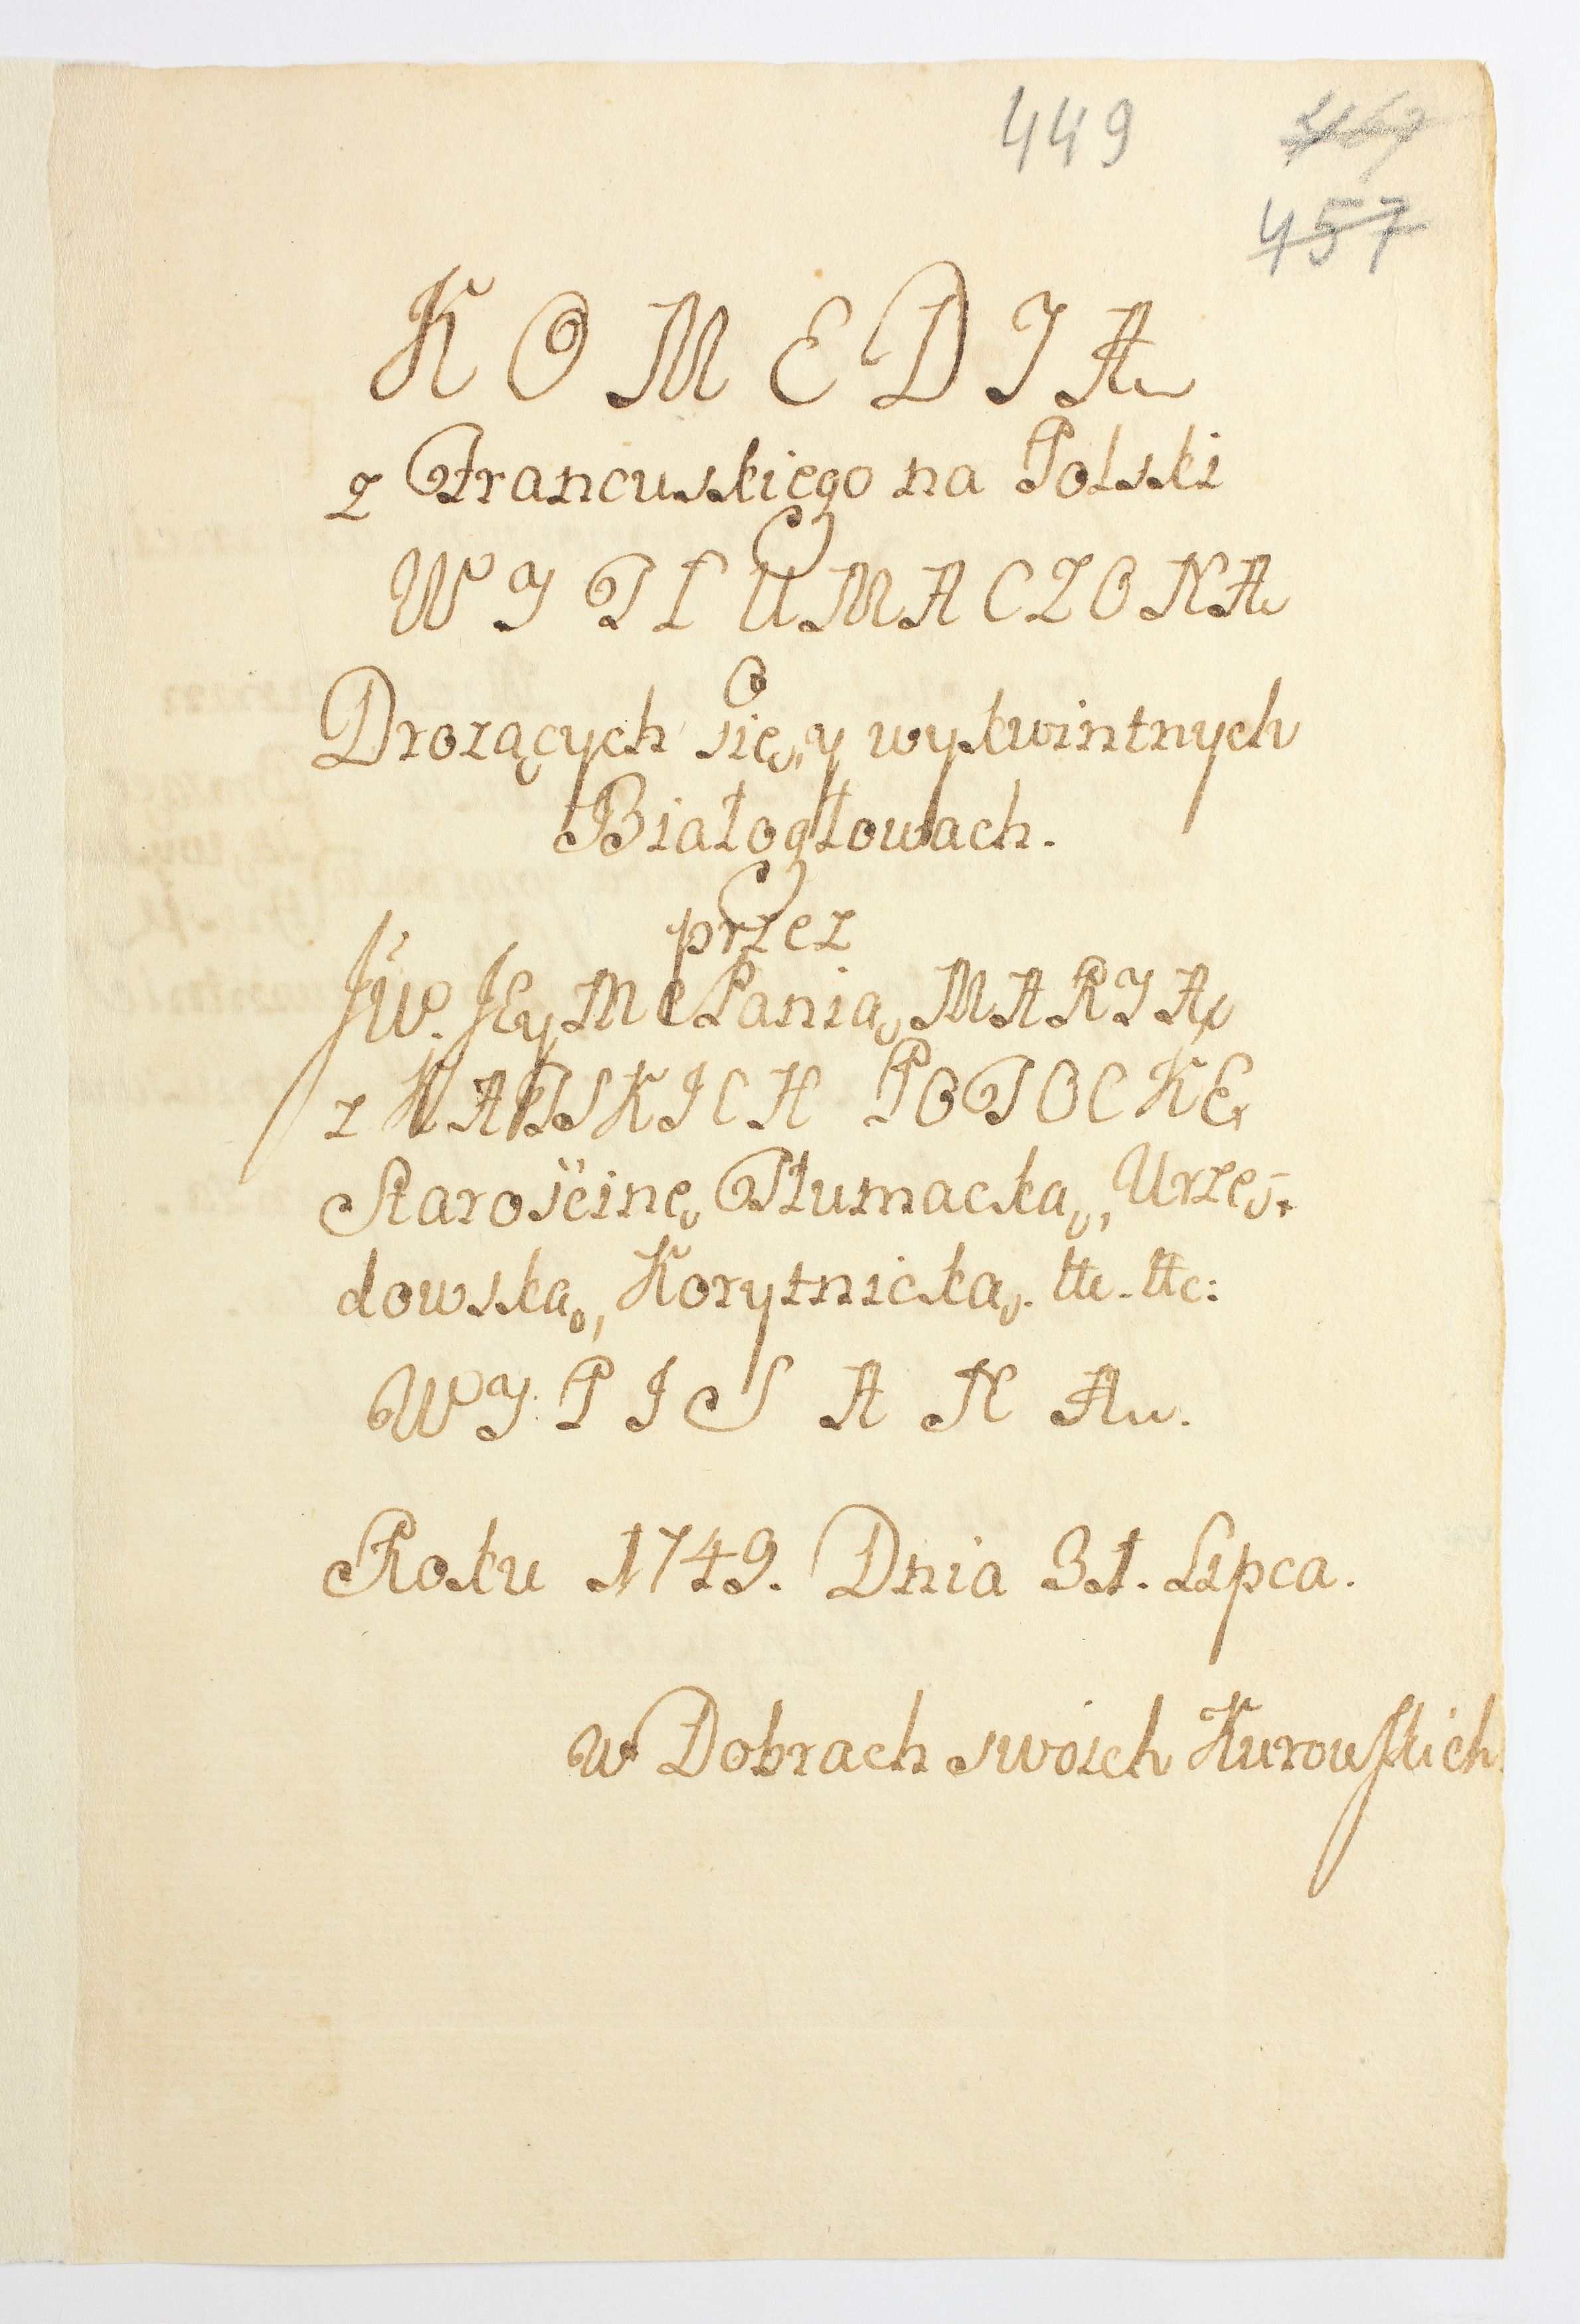 449
457
KOMEDIA
z Francuskiego na Polski
WYTŁUMACZONA
Drożących się, y wykwintnych
Białogłowach.
przez
JW. JEy Mc Panią MARIĄ
z KĄTSKICH POTOCKĘ
Starościnę Tłumacką, Urzę-
dowską, Korytnicką. &c. &c:
WYPISANA.
Roku 1749. Dnia 31. Lipca.
w Dobrach swoich Kurowskich